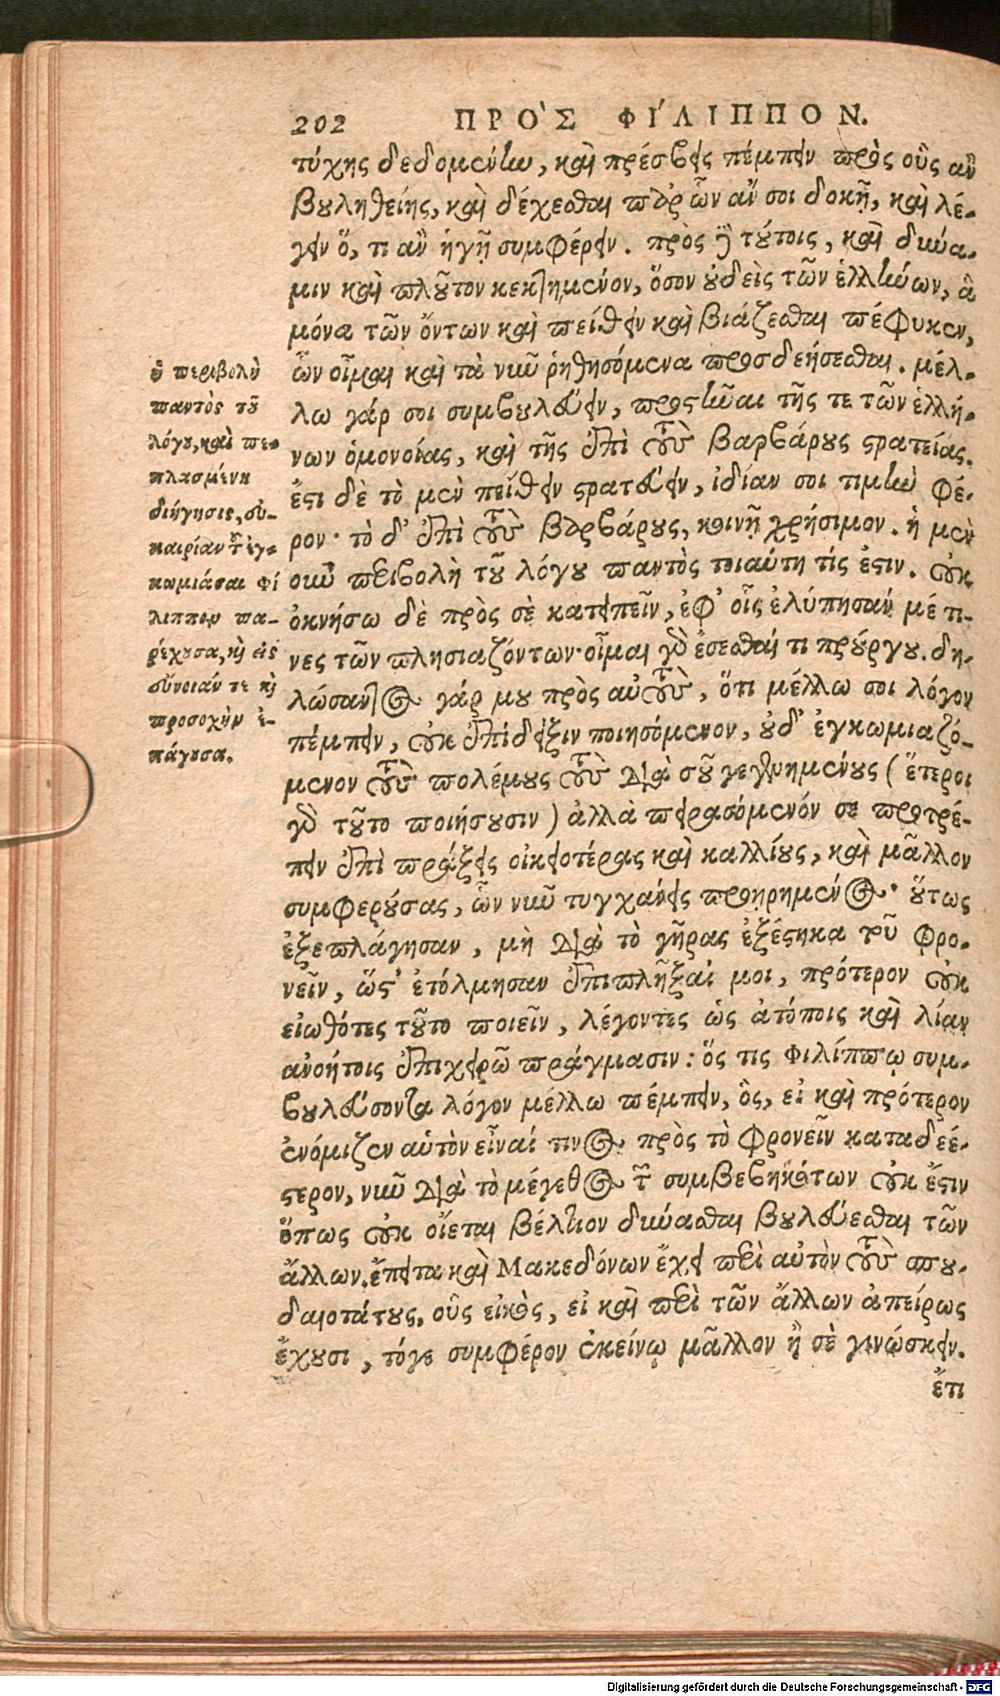 202 ΠΡΟ`Σ ΦΙ´ΛΙΠΠΟΝ.
τύχης δεδομένην, καὶ πρέσβεις πέμπειν πρὸς οὓς ἂν
βουληθείης, καὶ δέχεσθαι παρ' ὧν ἄν σοι δοκῇ, καὶ λέ-
γειν ὅ, τι ἂν ἡγῇ συμφέρειν. πρὸς δὲ τούτοις, καὶ δύνα-
μιν καὶ πλοῦτον κεκτημένον, ὅσον οὐδεὶς τῶν ἑλλήνων, ἃ
μόνα τῶν ὄντων καὶ πείθειν καὶ βιάζεσθαι πέφυκεν,
ὧν οἶμαι καὶ τὰ νῦν ῥηθησόμενα προσδεήσεσθαι. μέλ-
λω γάρ σοι συμβουλεύειν, προστῆναι τῆς τε τῶν ἑλλή-
νων ὁμονοίας, καὶ τῆς ἐπὶ τοὺς βαρβάρους στρατείας.
ἔστι δὲ τὸ μὲν πείθειν στρατεύειν, ἰδίαν σοι τιμὴν φέ-
ρον· τὸ δ' ἐπὶ τοὺς βαρβάρους, κοινῇ χρήσιμον. ἡ μὲν
οὖν περιβολὴ τοῦ λόγου παντὸς τοιαύτη τίς ἐστιν. οὐκ
ὀκνήσω δὲ πρὸς σὲ κατειπεῖν, ἐφ' οἷς ἐλύπησάν μέ τι-
νες τῶν πλησιαζόντων· οἶμαι γὰρ ἔσεσθαί τι προύργου. δη-
λώσαντος γάρ μου πρὸς αὐτοὺς, ὅτι μέλλω σοι λόγον
πέμπειν, οὐκ ἐπίδειξιν ποιησόμενον, οὐδ' ἐγκωμιαζό-
μενον τοὺς πολέμους τοὺς διὰ σοῦ γεγενημένους (ἕτεροι
γὰρ τοῦτο ποιήσουσιν) ἀλλὰ πειρασόμενόν σε προτρέ-
πειν ἐπὶ πράξεις οἰκειοτέρας καὶ καλλίους, καὶ μᾶλλον
συμφερούσας, ὧν νῦν τυγχάνεις προῃρημένος· οὕτως
ἐξεπλάγησαν, μὴ διὰ τὸ γῆρας ἐξέστηκα τοῦ φρο-
νεῖν, ὥστ' ἐτόλμησαν ἐπιπλῆξαί μοι, πρότερον οὐκ
εἰωθότες τοῦτο ποιεῖν, λέγοντες ὡς ἀτόποις καὶ λίαν
ἀνοήτοις ἐπιχειρῶ πράγμασιν: ὅς τις Φιλίππῳ συμ-
βουλεύσοντα λόγον μέλλω πέμπειν, ὃς, εἰ καὶ πρότερον
ἐνόμιζεν αὑτὸν εἶναί τινος πρὸς τὸ φρονεῖν καταδεέ-
στερον, νῦν διὰ τὸ μέγεθος τῶν συμβεβηκότων οὐκ ἔστιν
ὅπως οὐκ οἴεται βέλτιον δύνασθαι βουλεύεσθαι τῶν
ἄλλων. ἔπειτα καὶ Μακεδόνων ἔχει περὶ αὐτὸν τοὺς σπου-
δαιοτάτους, οὓς εἰκὸς, εἰ καὶ περὶ τῶν ἄλλων ἀπείρως
ἔχουσι, τόγε συμφέρον ἐκείνῳ μᾶλλον ἢ σὲ γινώσκειν.
ἔτι
ἡ περιβολὴ
παντὸς τοῦ
λόγου, καὶ πε-
πλασμένη
διήγησις, εὐ-
καιρίαν τοῦ ἐγ-
κωμιάσαι Φί
λιππον πα-
ρέχουσα, καὶ εἰς
εὔνοιάν τε καὶ
προσοχὴν ἐ-
πάγουσα.
Digitalisierung gefördert durch die Deutsche Forschungsgemeinschaft - DFG